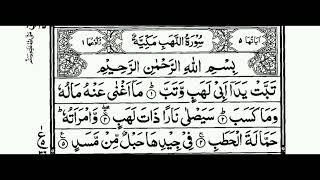 اٰيَاتُهَا ٥ سُوْرَةُ اللَّهَبِ مَكِّيَّةٌ رُكُوْعُهَا ١
بِسْمِ اللّٰهِ الرَّحْمٰنِ الرَّحِيْمِ
تَبَّتْ يَدَاۤ اَبِيْ لَهَبٍ وَّتَبَّ ۝١ مَاۤ اَغْنٰى عَنْهُ مَالُهٗ
وَمَا كَسَبَ ۝٢ سَيَصْلٰى نَارًا ذَاتَ لَهَبٍ ۝٣ وَّامْرَاَتُهٗ ؕ
حَمَّالَةَ الْحَطَبِ ۝٤ فِيْ جِيْدِهَا حَبْلٌ مِّنْ مَّسَدٍ ۝٥